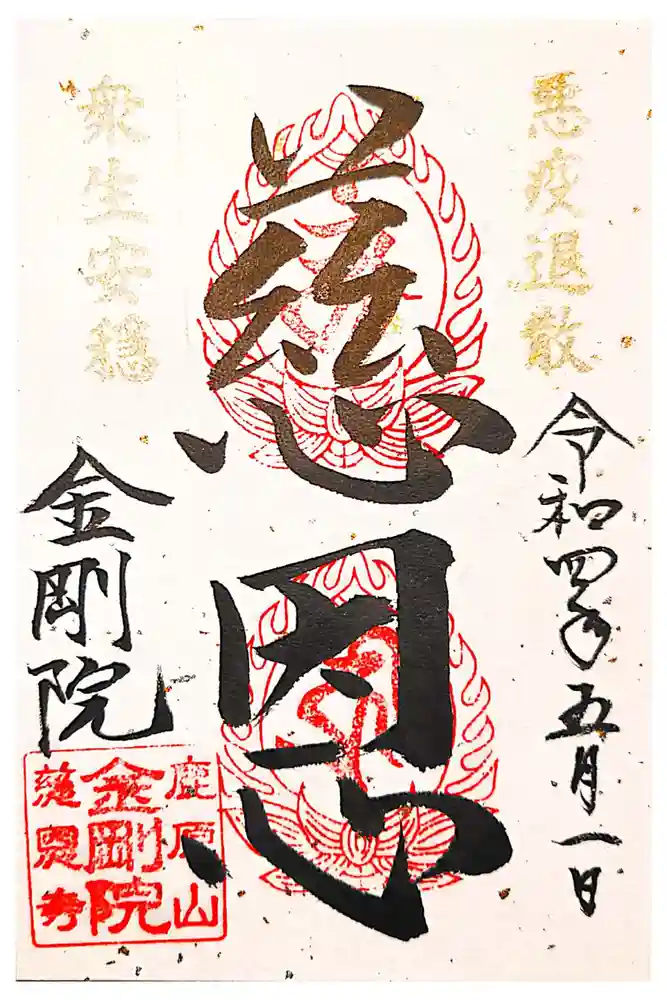 悪疫退散
令和四年五月一日
慈恩
衆生安穏
金剛院
鹿原山
金剛院
慈恩寺